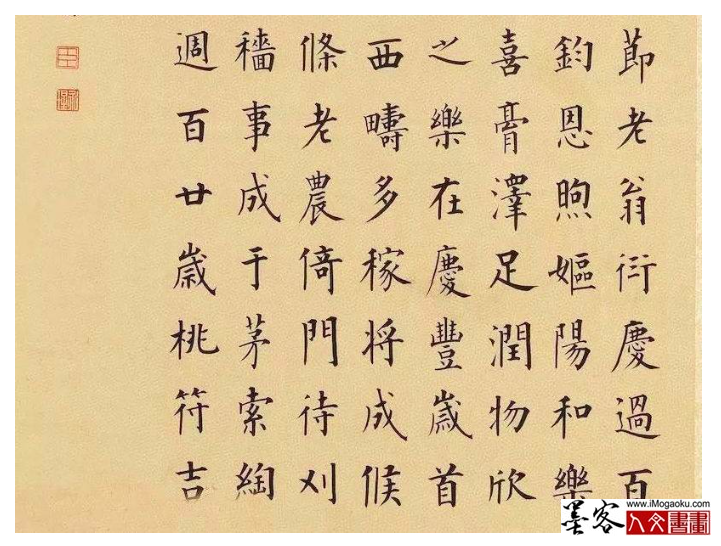 莭老翁衍慶過百
鈞恩煦嫗陽和樂
喜膏澤足潤物欣
之樂在慶豐嵗首
西疇多稼將成候
條老農倚門待刈
穡事成于茅索綯
週百廿嵗桃符吉
www.iMogaoku.com
墨客人文書畫